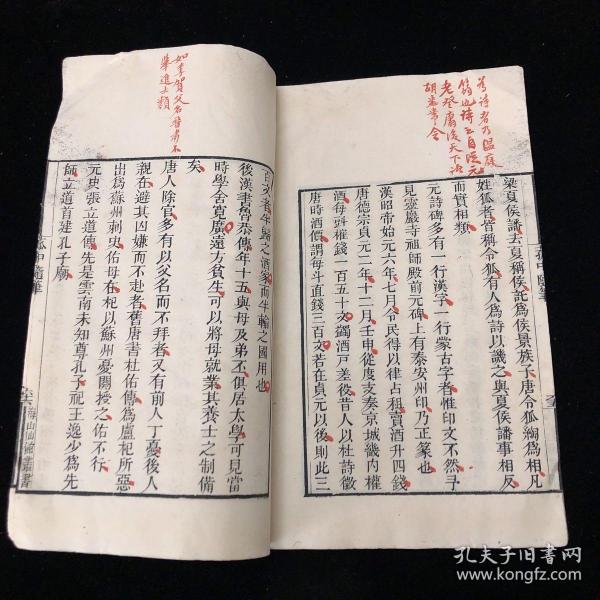 為詩者乃溫庭
筠也詩云自從元
老登庸後天下諸
胡盡帶令
梁夏侯譒去夏稱侯託為侯景族子唐令狐綯為相凡
姓狐者皆稱令狐有人為詩以譏之與夏侯譒事相反
而實相類
元詩碑多有一行漢字一行蒙古字者惟印文不然予
見靈巖寺祖師殿前元碑上有泰安州印乃正篆也
漢昭帝始元六年七月令民得以律占租賣酒升四錢
唐德宗貞元二年十二月壬申從度支奏京城畿內榷
酒每斗榷錢一百五十文蠲酒戶差役昔人以杜詩徵
唐時酒價謂每斗直錢三百文若在貞元以後則此三
菰中隨筆
如李賀父名晉肅不
舉進士類
百文者半歸之酒家而半輸之國用也
後漢書魯恭傳年十五與母及弟丕俱居太學可見當
時學舍寬廣遠方貧生可以將母就業其養士之制備
矣
唐人除官多有以父名而不拜者又有前人丁憂後人
親在避其凶嫌而不赴者舊唐書杜佑傳為盧杞所惡
出為蘇州刺史佑母在杞以蘇州憂闕授之佑不行
元史張立道傳先是雲南未知尊孔子祀王逸少為先
師立道首建孔子廟
菰中隨筆
海山仙館叢書
孔夫子旧书网
www.kongfz.com